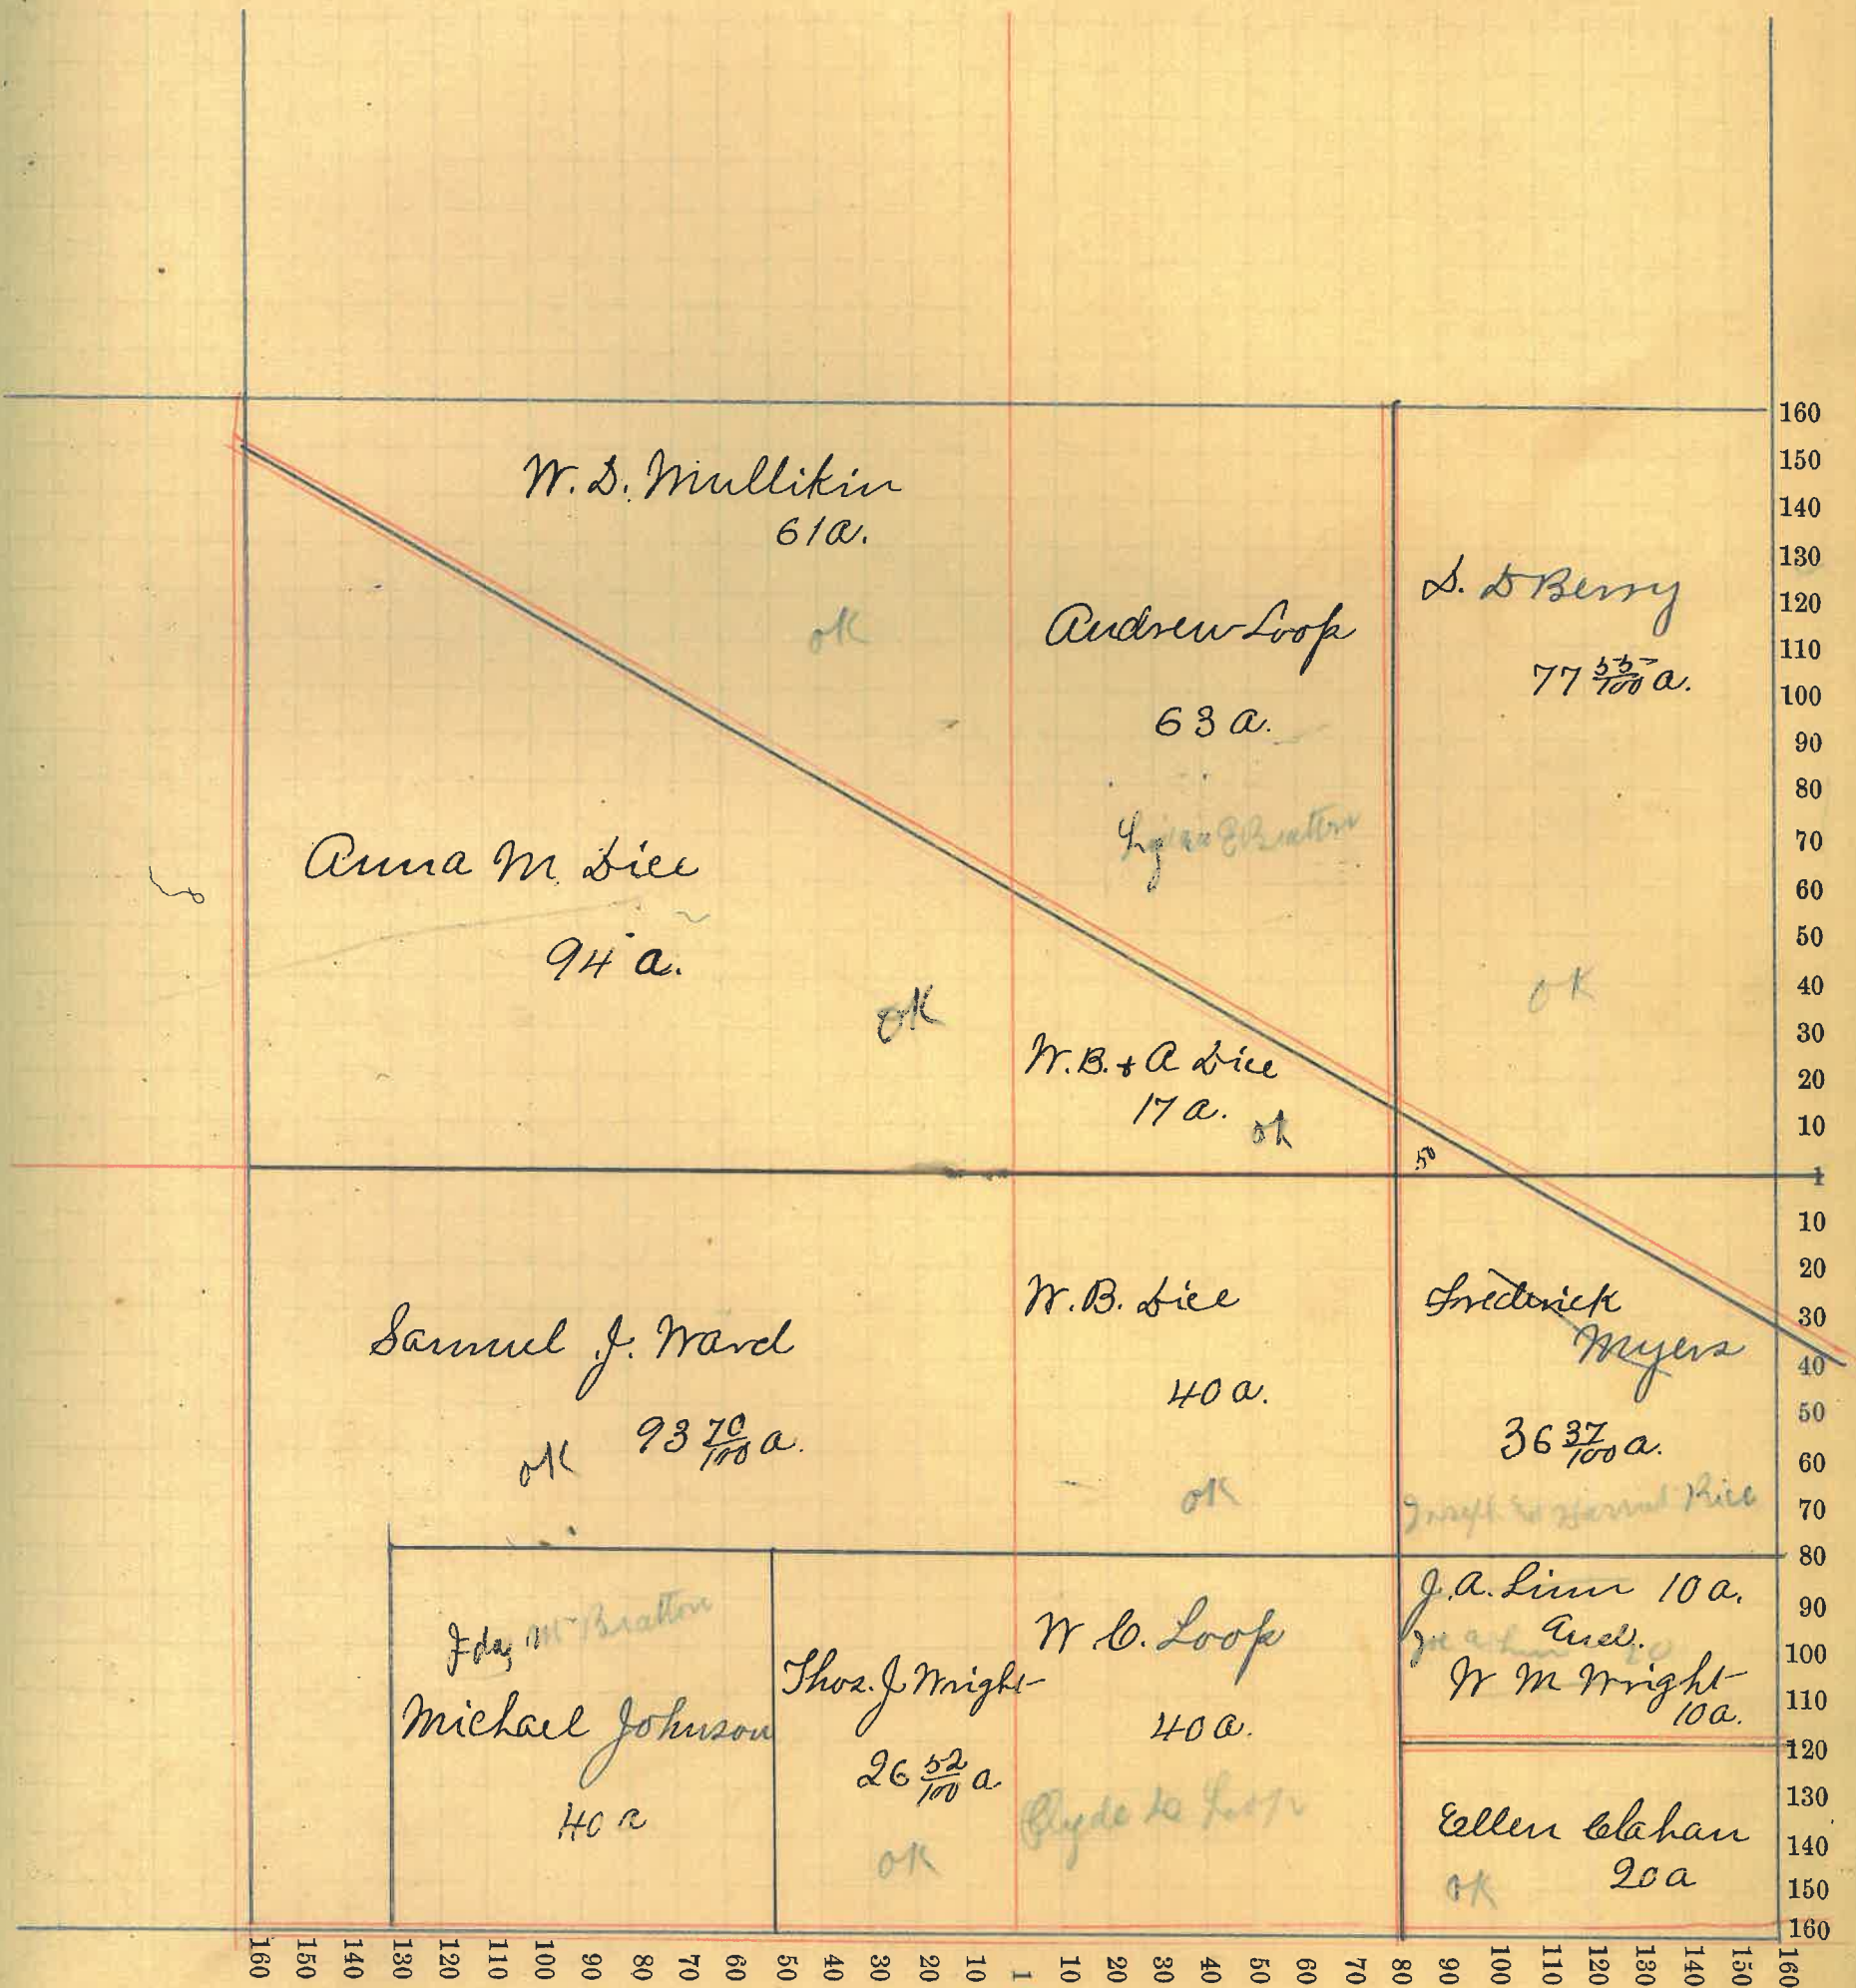 W. D. Mullikin
61 a.
ok
Andrew Loop
63 a.
S. D Berry
77 55/100 a.
ok
Anna M. Dice
94 a.
ok
W.B. + A Dice
17 a.
ok
.50
Samuel J. Ward
93 70/100 a.
ok
W. B. Dice
40 a.
ok
Frederick
Myers
36 37/100 a.
Rice
Ida M Bratton
Michael Johnson
40 a
Thos. J Wright
26 52/100 a.
ok
W C. Loop
40 a.
Clyde Loop
J. A. Linn 10 a.
and.
W M Wright
10 a.
Ellen Clahan
20 a
ok
160
150
140
130
120
110
100
90
80
70
60
50
40
30
20
10
1
10
20
30
40
50
60
70
80
90
100
110
120
130
140
150
160
160 150 140 130 120 110 100 90 80 70 60 50 40 30 20 10 1 10 20 30 40 50 60 70 80 90 100 110 120 130 140 150 160